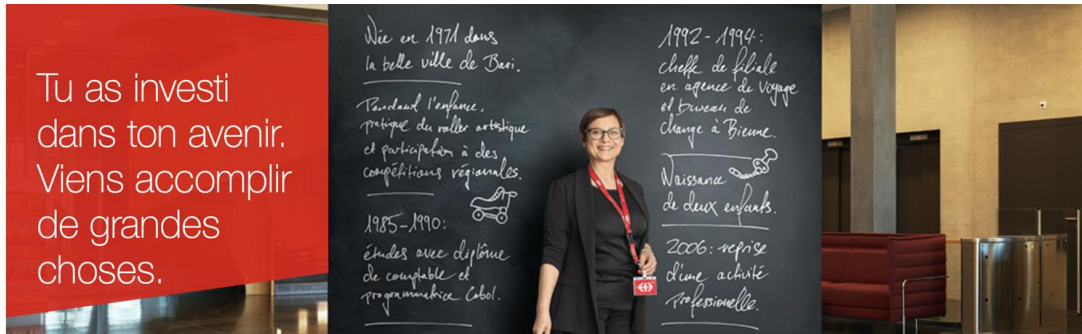 Tu as investi
dans ton avenir.
Viens accomplir
de grandes
choses.
Née en 1971 dans
la belle ville de Bari.
Pendant l'enfance,
pratique du roller artistique
et participation à des
compétitions régionales.
1985-1990:
études avec diplôme
de comptable et
programmatrice Cobol.
1992-1994:
cheffe de filiale
en agence de voyage
et bureau de
change à Bienne.
Naissance
de deux enfants.
2006: reprise
d'une activité
professionnelle.